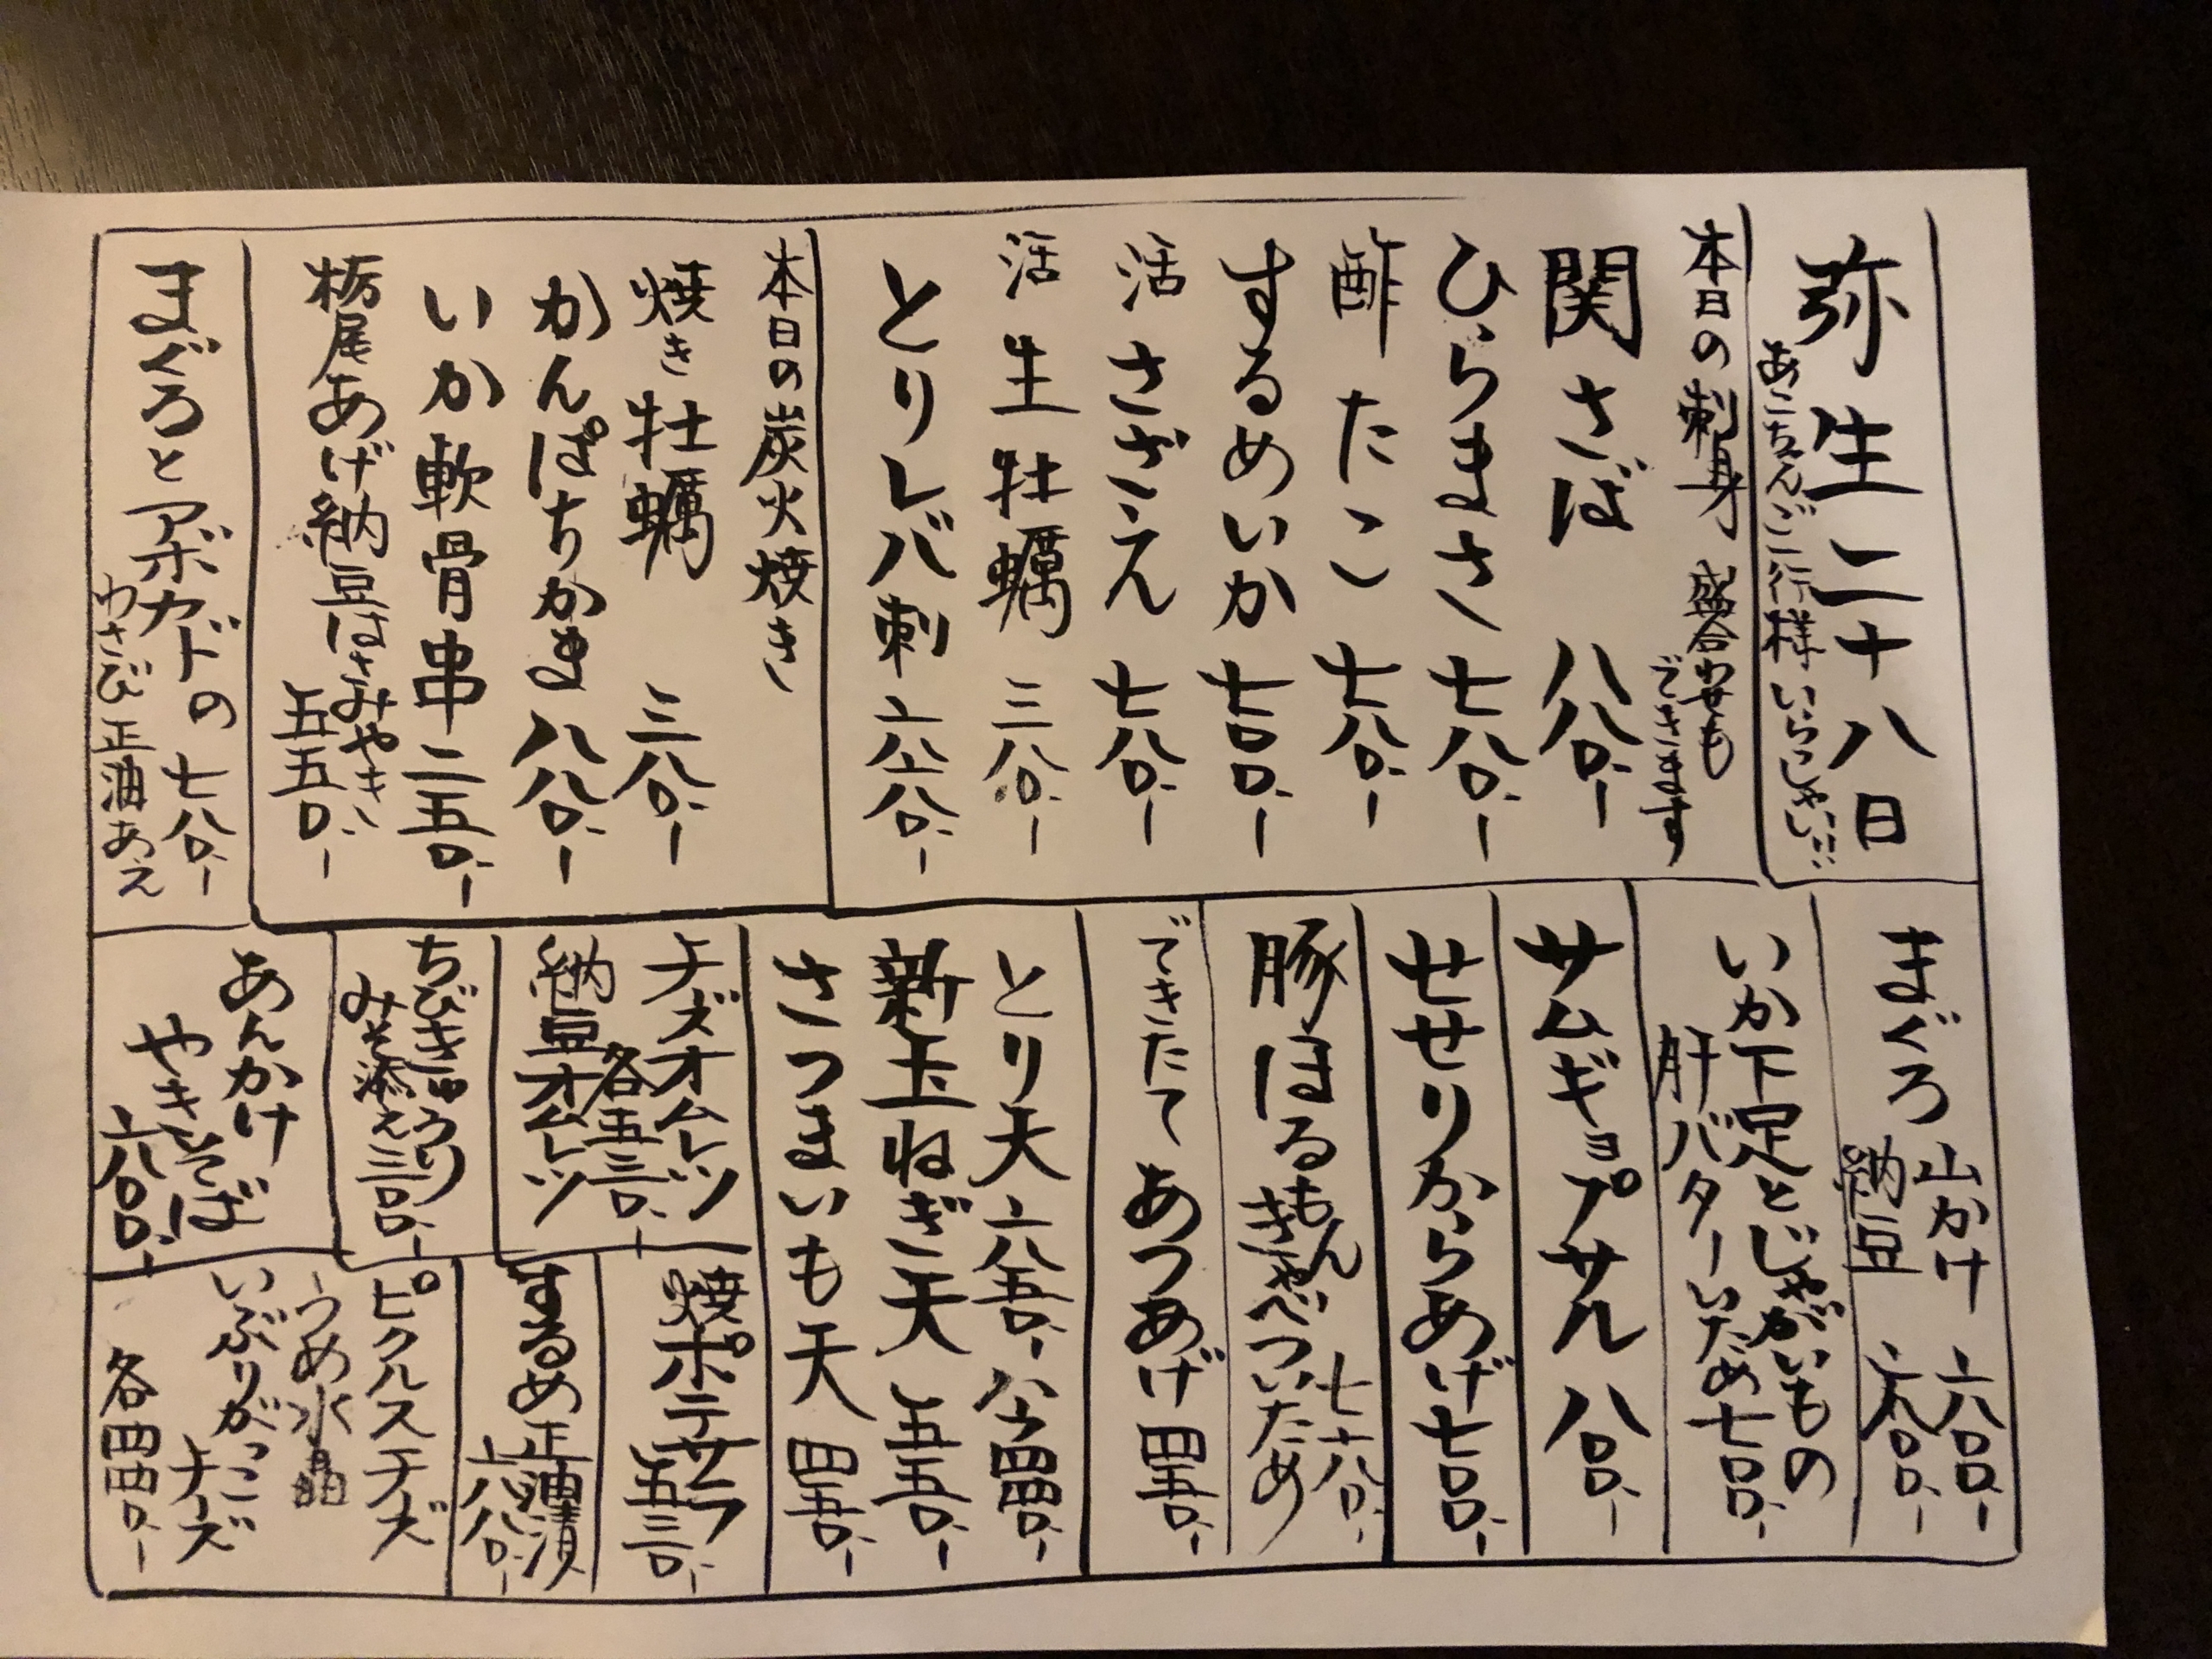 弥生二十八日
あこちゃんご一行様いらっしゃい!!
本日の刺身 盛合わせも
できます
関さば 八八〇.-
ひらまさ 七八〇.-
酢たこ 七八〇.-
するめいか 七〇〇.-
活さざえ 七八〇.-
活生牡蠣 三八〇.-
とりレバ刺 六八〇.-
本日の炭火焼き
焼き牡蠣 三八〇.-
かんぱちかま 八八〇.-
いか軟骨串 二五〇.-
栃尾あげ納豆はさみやき
五五〇.-
まぐろとアボカドの 七八〇.-
わさび正油あえ
まぐろ山かけ 六八〇.-
納豆
いか下足とじゃがいもの
肝バターいため 七〇〇.-
サムギョプサル 八〇〇.-
せせりからあげ 七〇〇.-
豚ほるもん 七八〇.-
きゃべついため
できたて あつあげ 四五〇.-
とり天 六五〇.-
新玉ねぎ天 五五〇.-
さつまいも天 四五〇.-
チーズオムレツ
納豆オムレツ
各五三〇.-
ちびきゅうり
みそ添え 三〇〇.-
あんかけ
やきそば
六〇〇.-
焼ポテサラ
五三〇.-
するめ正油漬
六八〇.-
ピクルスチーズ
うめ水晶
いぶりがっこ
チーズ